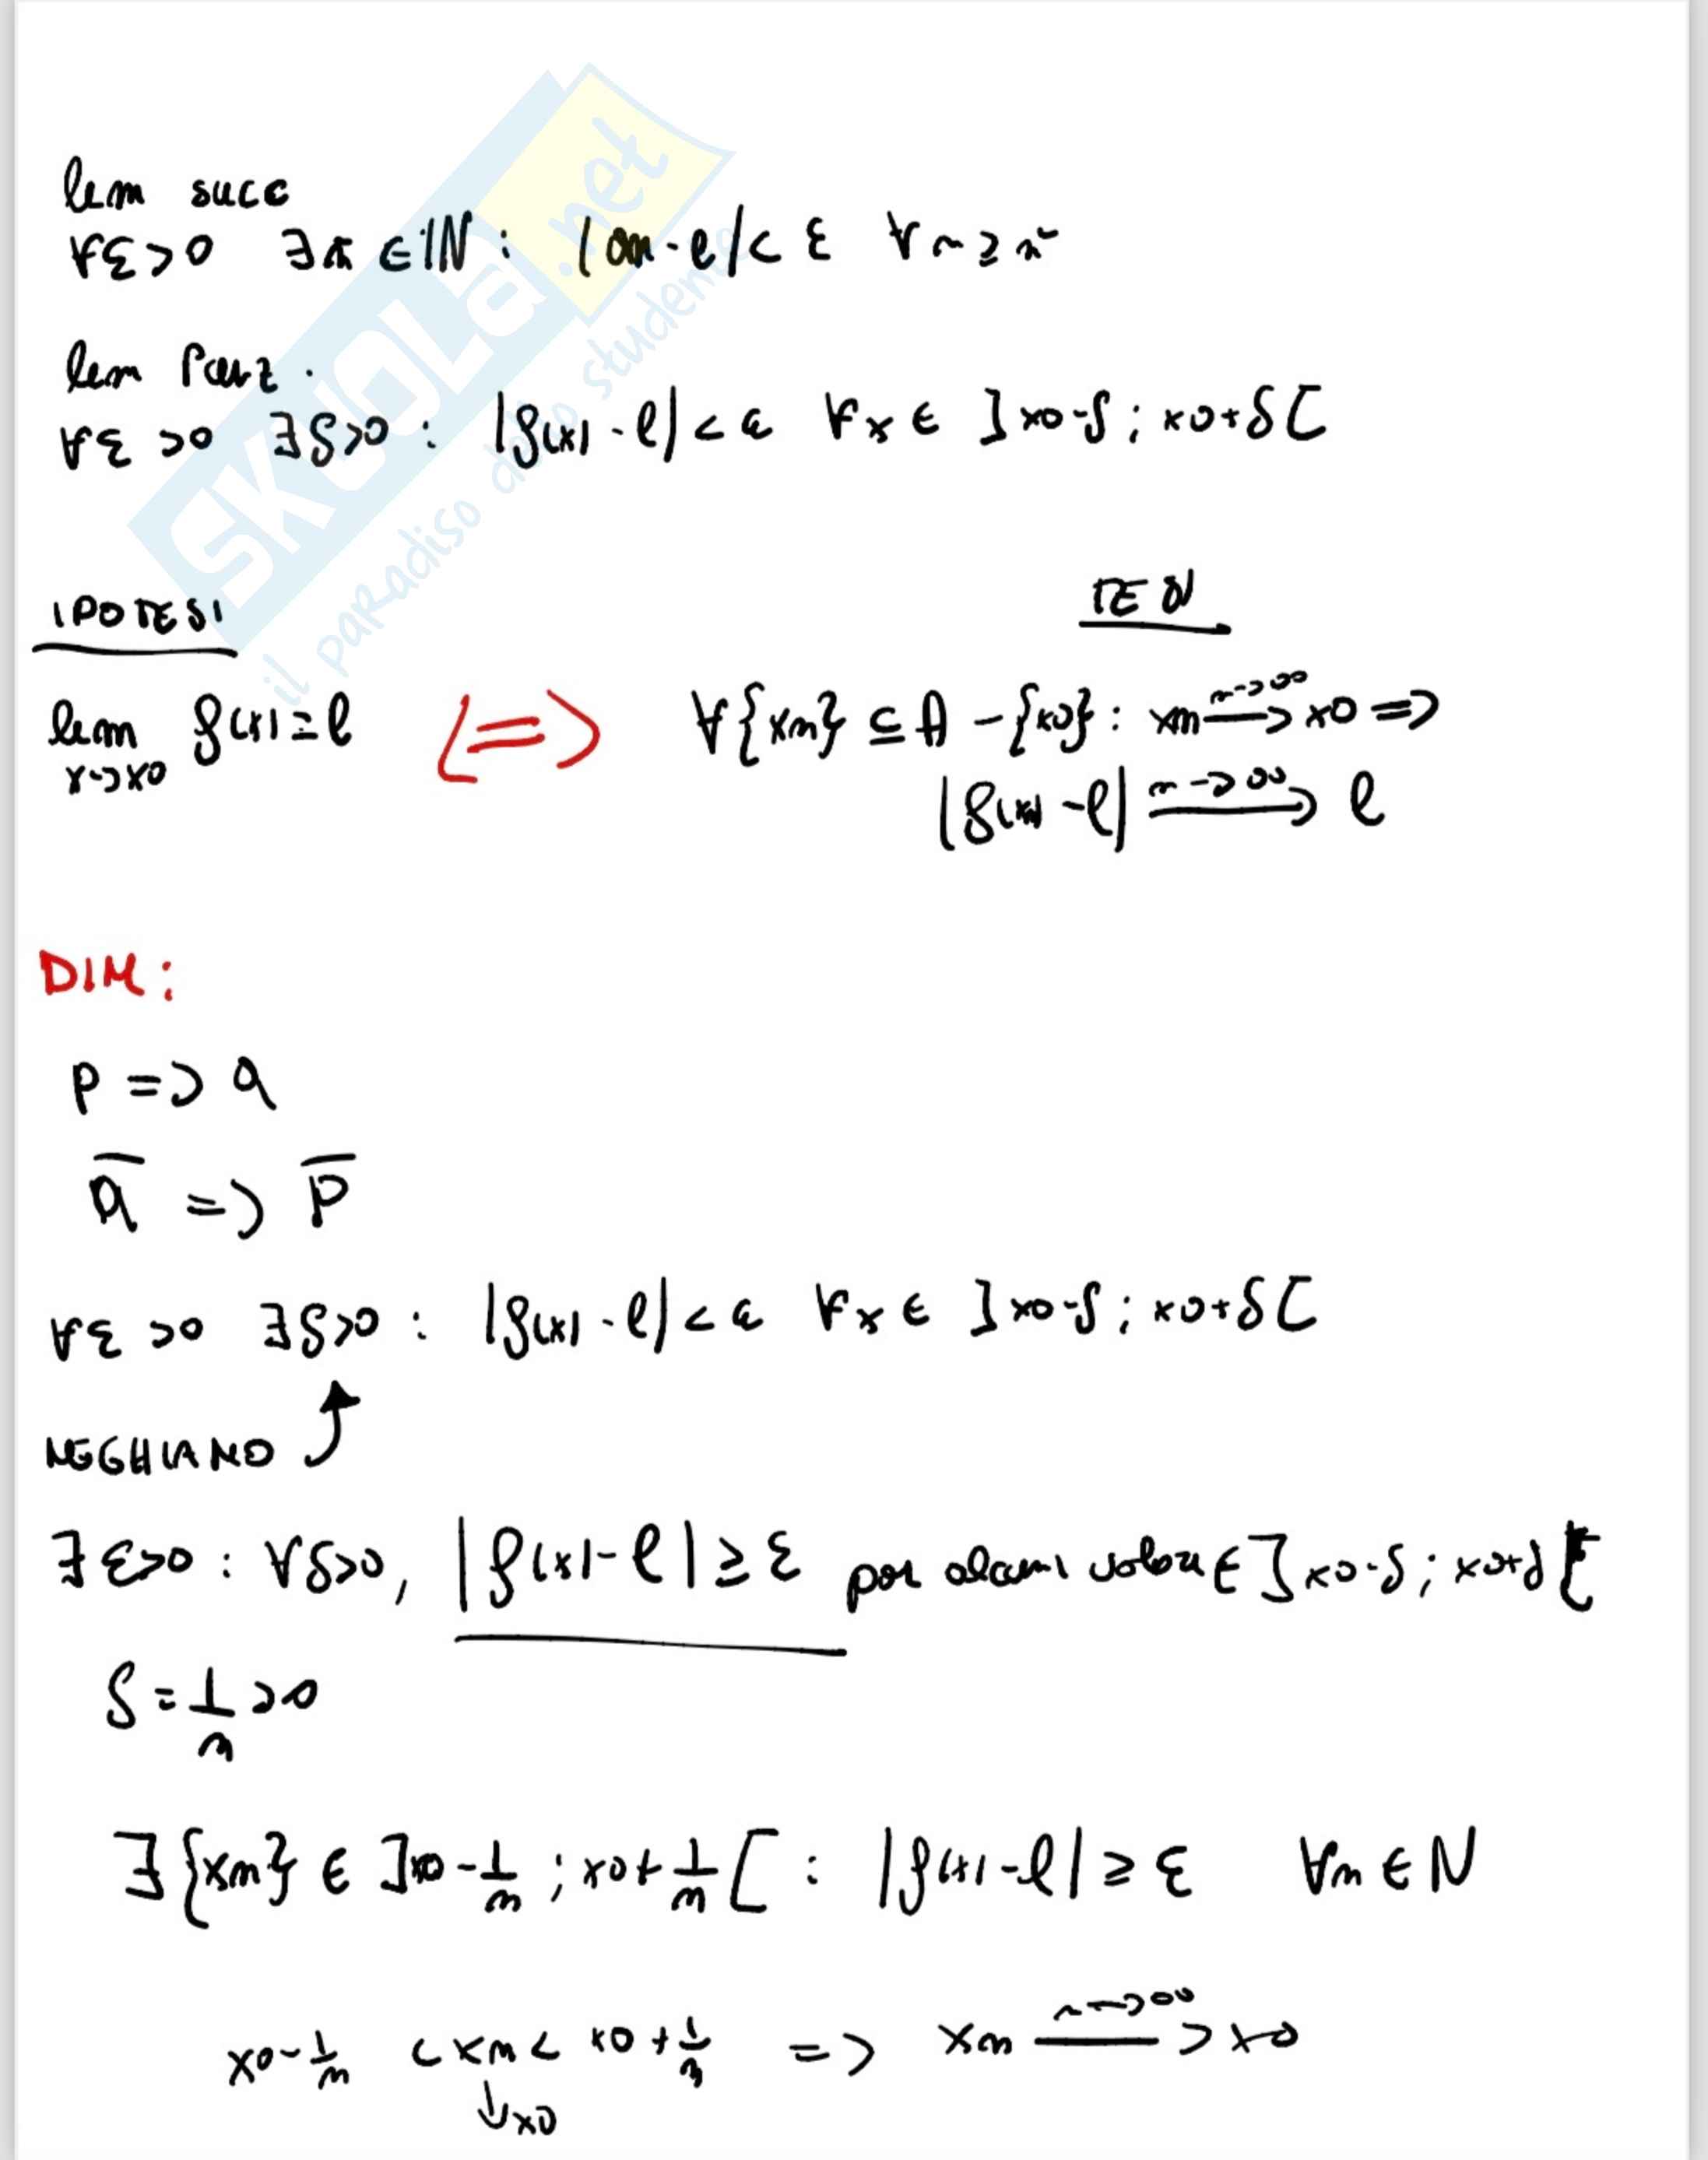 lim succ
∀ε>0 ∃n̄ ∈ ℕ : |an-l|< ε ∀n≥n̄
lim funz.
∀ε >0 ∃δ>0 : |f(x)-l|<ε ∀x∈ ]x0-δ; x0+δ[
IPOTESI
TESI
lim f(x)=l (=>) ∀{xn} ⊆ A -{x0} : xn n->∞ -> x0 =>
x->x0
|f(xn) -l| n->∞ -> l
DIM:
p => q
q̄ => p̄
∀ε >0 ∃δ>0 : |f(x)-l|<ε ∀x∈ ]x0-δ; x0+δ[
NEGHIAMO
∃ε>0 : ∀δ>0, |f(x)-l|≥ε per alcuni valori ∈ ]x0-δ; x0+δ[
δ = 1/n >0
∃{xn} ∈ ]x0-1/n ; x0+1/n[ : |f(x)-l|≥ε ∀n∈N
x0-1/n < xn < x0+1/n => xn n->∞ -> x0
↓x0
SKUOLA.net
il paradiso dello studente